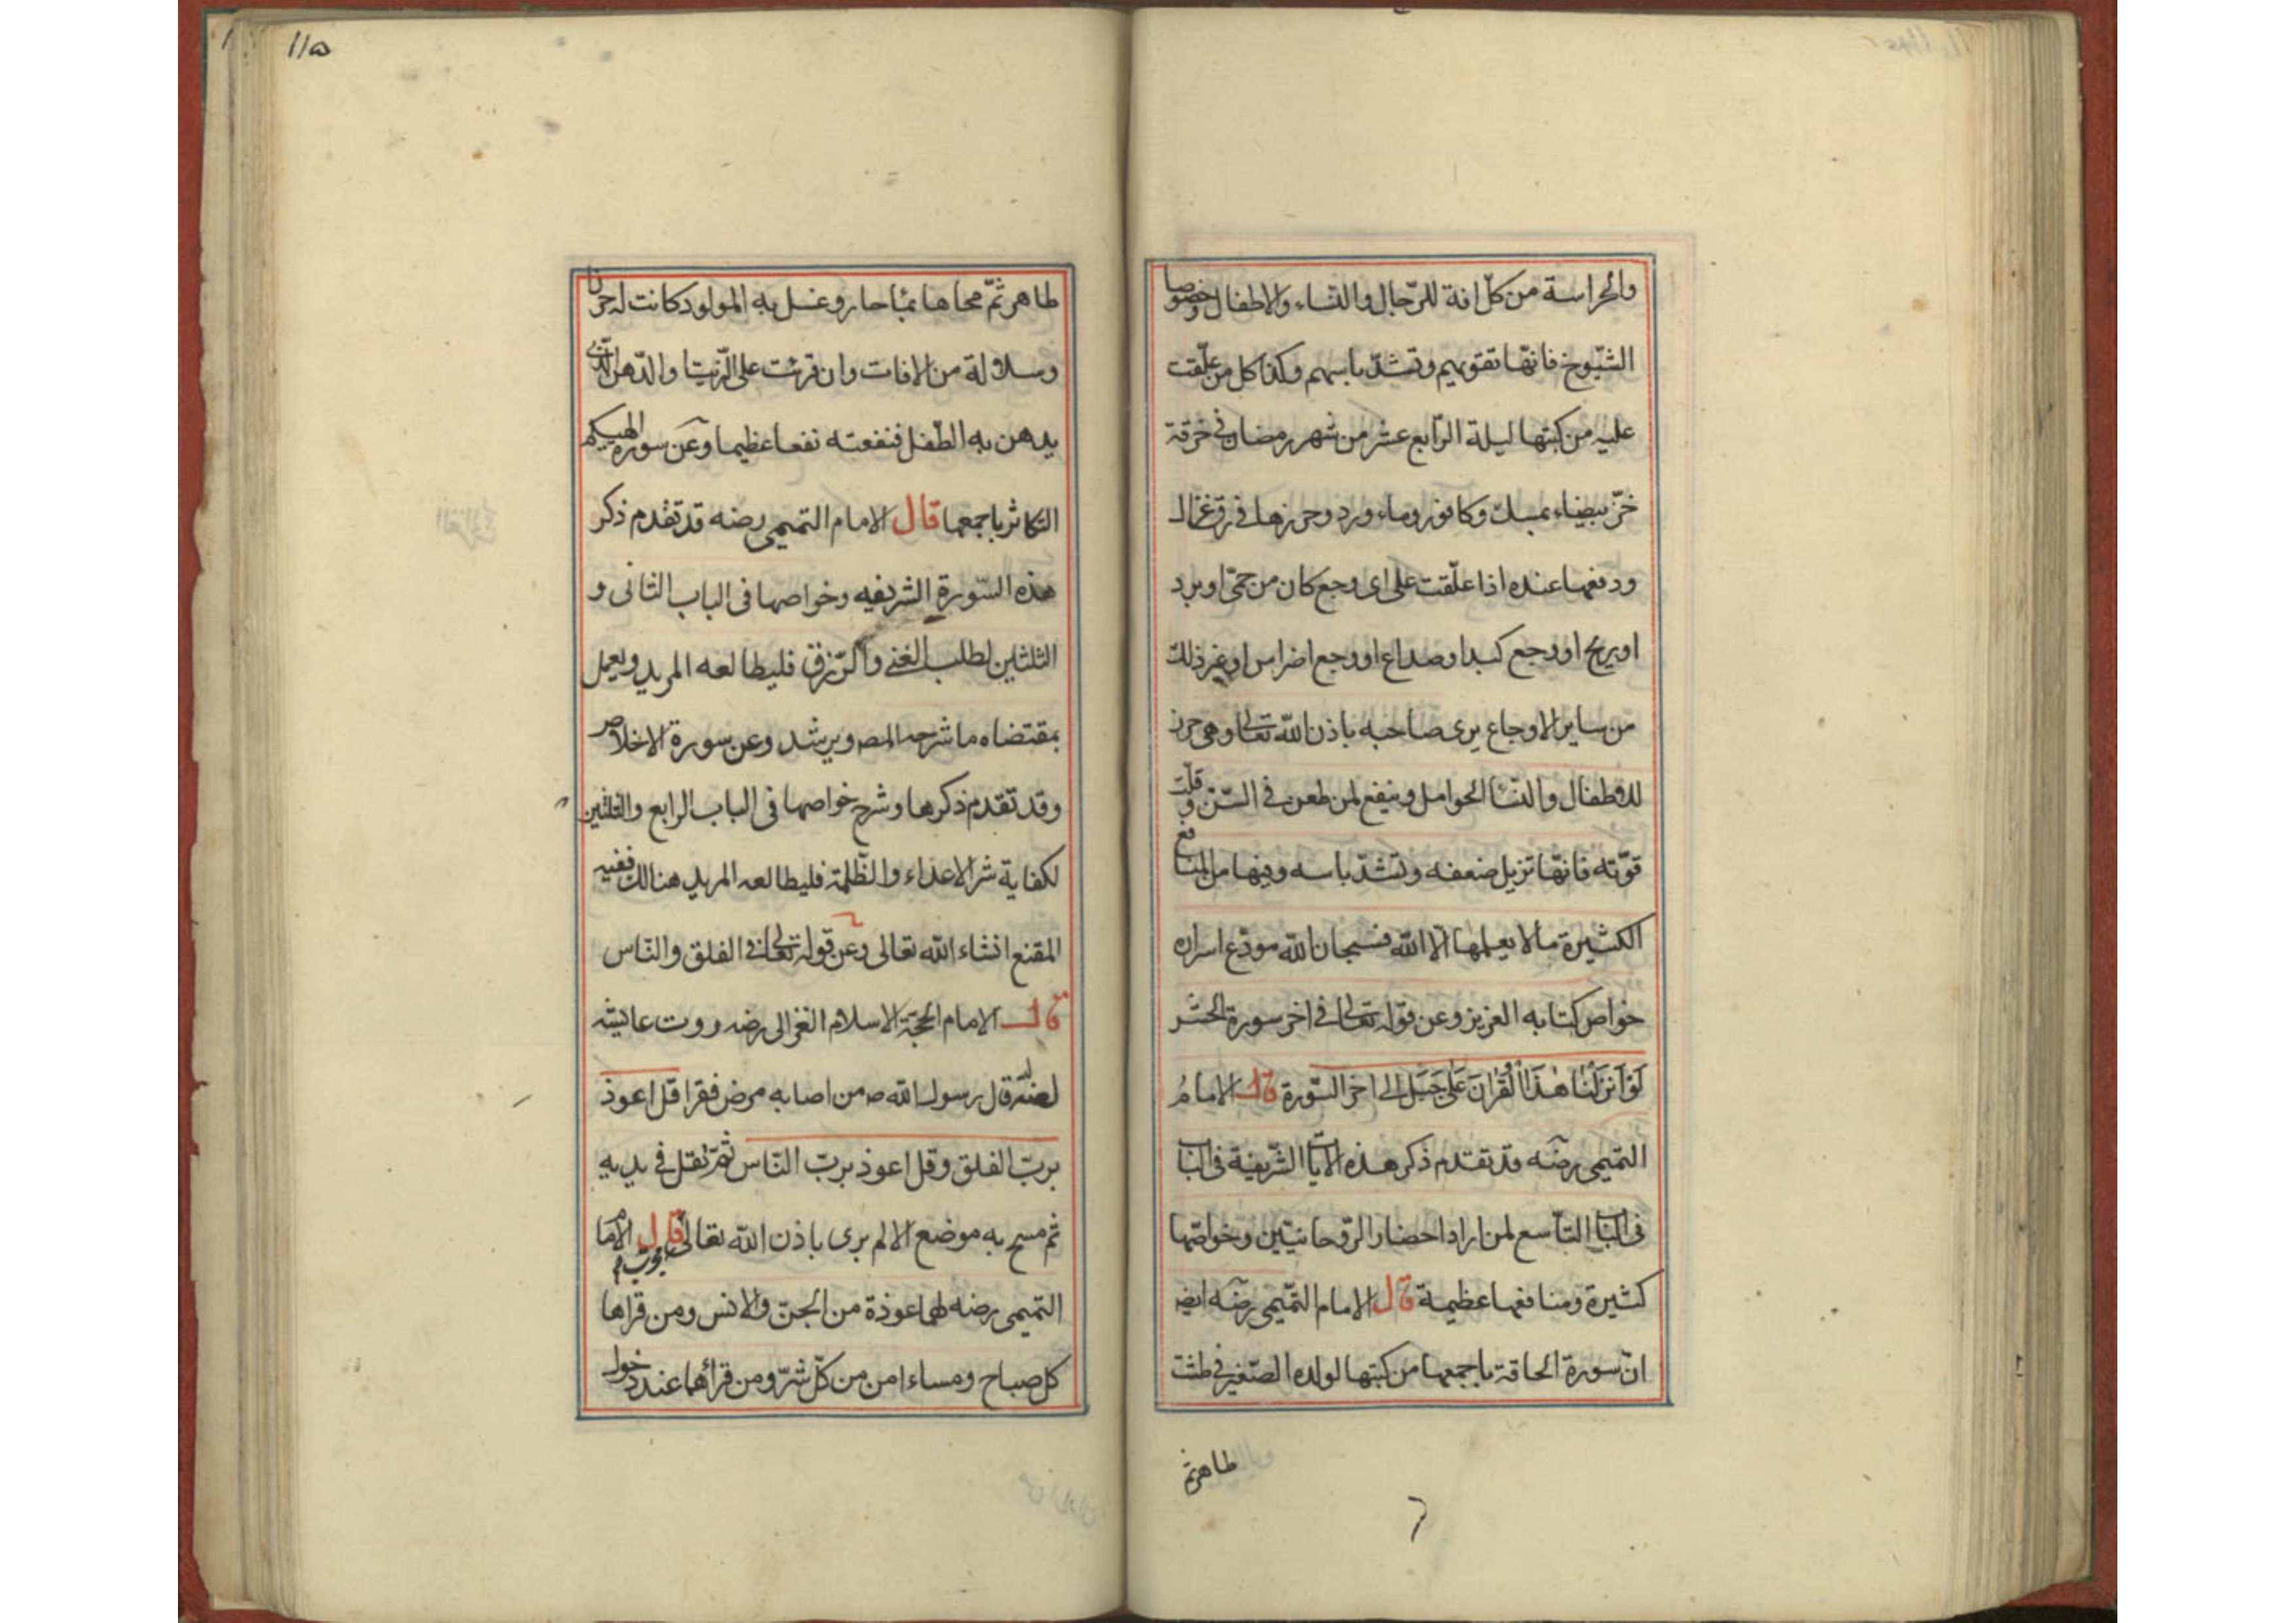 والحراسة من كل افة للرّجال والنساء والاطفال وخصوصا
الشيّوخ فانهّا تقويهم وتشدّ باسهم وكذا كل من علّقت
عليه من كبتها ليلة الرّابع عشر من شهر رمضان فى خرقة
خزّ بيضاء بمسك وكافور وماء ورد وحرزها فى رق غزال
ودفعها عنده اذا علّقت على اى وجع كان من حمّى او برد
او ريح او وجع كبد او صداع او وجع اضراس او غير ذلك
من ساير الاوجاع يرى صاحبه باذن الله تعالى وهى حرز
للاطفال والنسّا الحوامل وينفع لمن طعن فى السّن وقلّت
قوّته فانهّا تزيل ضعفه وتشدّ باسه وفيها من المنافع
الكثيرة ما لا يعلمها الّا الله فسبحان الله مودّع اسراره
خواص كتابه العزيز وعن قوله تعالى فى اخر سورة الحشر
لَوْ اَنْزَلْنَا هٰذَا الْقُرْانَ عَلَى جَبَل الى اخر السّورة قال الامامُ
التميمى رضه قد تقدم ذكر هذه الايات الشّريفة فى الباب
فى الباب التّاسع لمن اراد احضار الرّوحانييّن وخواصّها
كثيرة ومنافعها عظيمة قال الامام التّميمى رضه ايضه
انّ سورة الحاقة باجمعها من كبتها لولده الصّغير فى طشت
طاهر ثم
١١٥
طاهر ثمّ محاها بمٓا حار وغسل به المولود كانت له حرزا
وسلالة من الافات وان قرئت على الزّيت او الدّهن الذّى
يدهن به الطّفل فنفعته نفعا عظيما وعن سورة الهيكم
التكاثر باجمعها قال الامام التميمى رضه قد تقدم ذكر
هذه السّورة الشريفيه وخواصها فى الباب الثانى و
الثلثين لطلب الغنى والرّزق فليطالعه المريد ويعمل
بمقتضاه ما شرحه المصه ويرشد وعن سورة الاخلاص
وقد تقدم ذكرها وشرح خواصها فى الباب الرابع والثلثين
لكفاية شر الاعداء والظّلمة فليطالعه المريد هنالك ففيه
المقنع انشاء الله تعالى وعن قوله تعالى فى الفلق والنّاس
قال الامام الحجّة الاسلام الغزالى رضه روت عايشه
قال رسول الله صه من اصابه مرض فقرا قل اعوذ
بربّ الفلق وقل اعوذ بربّ النّاس ثمّ تفل فى يديه
ثم مسح به موضع الالم برى باذن الله تعالى مجرب قال الامام
التميمى رضه لهما عوذة من الجنّ والانس ومن قراها
كل صباح ومساء امن من كلّ شرّ ومن قرأهما عند دخول